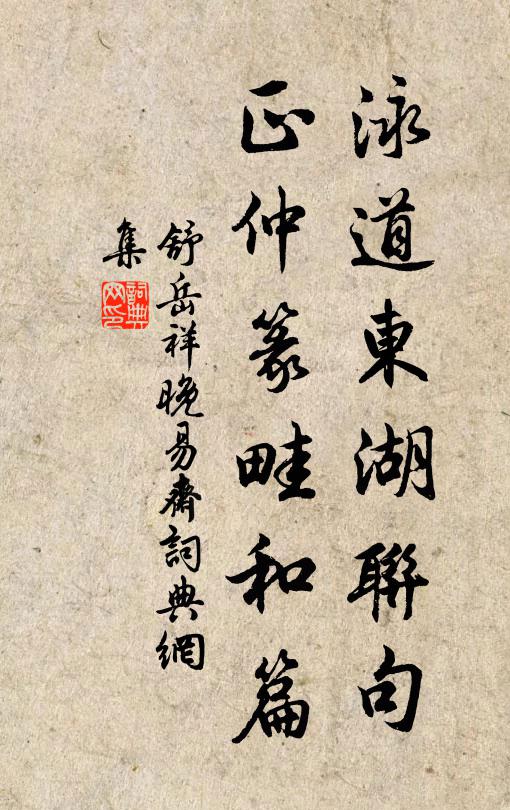 泳道東湖聯句
正仲篆畦和篇
舒岳祥晚易齋詞典網
集
詞典
网印